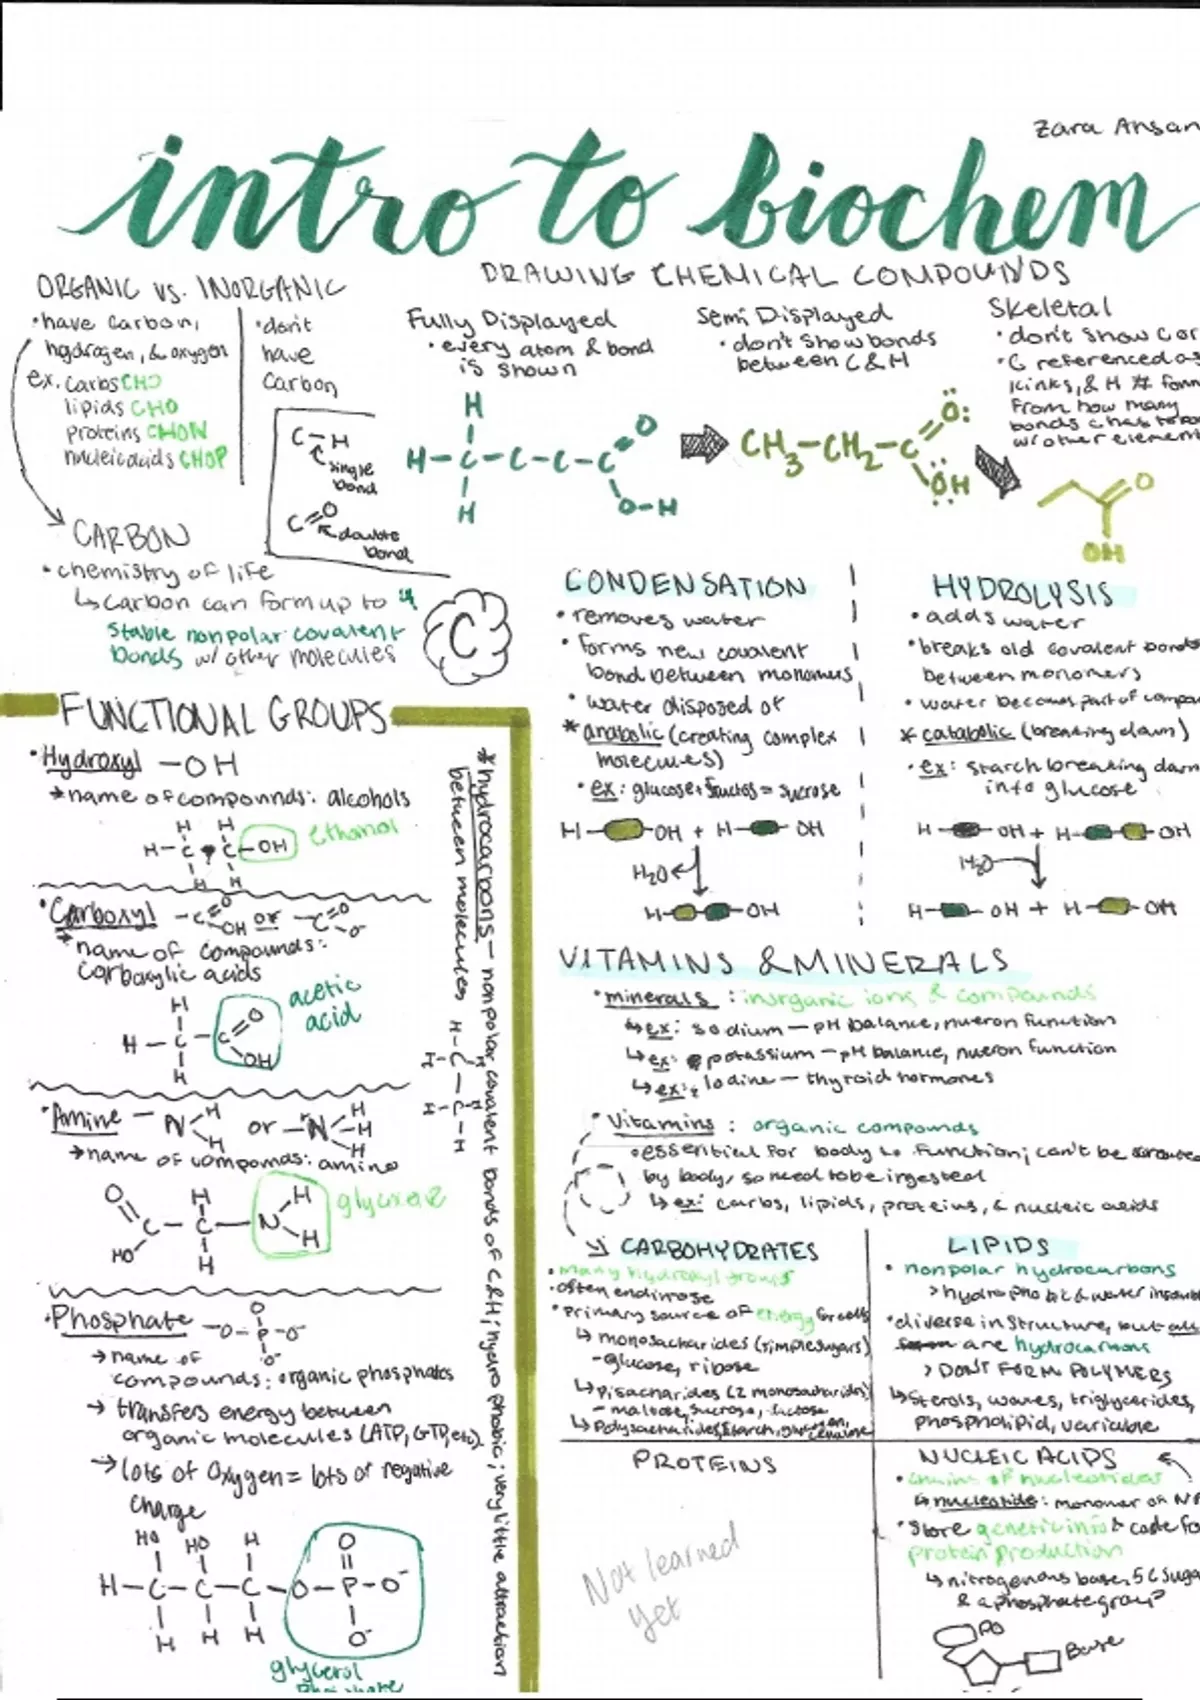 Zara Ansan
intro to biochem
ORGANIC vs. INORGANIC
• have carbon,
hydrogen, & oxygen
ex. carbs CHO
lipids CHO
proteins CHON
nucleic acids CHOP
• don't
have
carbon
C-H
single
bond
C=O
double
bond
CARBON
• chemistry of life
↳ carbon can form up to 4
stable nonpolar covalent
bonds w/ other molecules
C
DRAWING CHEMICAL COMPOUNDS
Fully Displayed
• every atom & bond
is shown
H
H-C-C-C-C
O
O-H
H
Semi Displayed
• don't show bonds
between C & H
CH3-CH2-C
O:
OH
Skeletal
• don't show C or
• C referenced as
kinks, & H # form
from how many
bonds C has to
w/ other element
O
OH
FUNCTIONAL GROUPS
• Hydroxyl -OH
* name of compounds: alcohols
H H
H-C C-OH ethanol
H H
• Carboxyl -C=O OH or -C=O O-
* name of compounds:
carboxylic acids
acetic
acid
H
H-C-C=O
OH
H
• Amine -N H H or -N+ H H H
→ name of compounds: amino
O H H
C-C-N
HO H H
• Phosphate O-
-O-P-O-
O-
→ name of
compounds: organic phosphates
→ transfers energy between
organic molecules (ATP, GTP, etc).
→ lots of oxygen = lots of negative
charge
HO HO H O
H-C-C-C-O-P-O-
H H H O-
glycerol
phosphate
* hydrocarbons - nonpolar, covalent bonds of C&H; hydrophobic; very little attraction
between molecules
H
H-C-H
H-C-H
H
CONDENSATION
• removes water
• forms new covalent
bond between monomers
• water disposed of
* anabolic (creating complex
molecules)
• ex: glucose + fructos = sucrose
H- -OH + H- OH
H2O
H- -OH
HYDROLYSIS
• adds water
• breaks old covalent bonds
between monomers
• water becomes part of compou
* catabolic (breaking down)
• ex: starch breaking down
into glucose
H- -OH + H- -OH
H2O
H- -OH + H- -OH
VITAMINS & MINERALS
• minerals : inorganic ions & compounds
↳ ex: sodium - pH balance, nueron function
↳ ex: potassium - pH balance, nueron function
↳ ex: Iodine - thyroid hormones
• Vitamins : organic compounds
• essential for body to function; can't be
by body, so need to be ingested
↳ ex: carbs, lipids, proteins, & nucleic acids
CARBOHYDRATES
• Many hydroxyl groups
• often end in ose
• primary source of energy for cells
↳ monosacharides (simple sugars)
- glucose, ribose
↳ Disacharides (2 monosacharides)
- maltose, sucrose, lactose
↳ Polysacharides, starch, glycogen, cellulose
LIPIDS
• nonpolar hydrocarbons
> hydrophobic & water insolub
• diverse in structure, but all
are hydrocarbons
> DON'T FORM POLYMERS
↳ sterols, waxes, triglycerides,
phospholipid, variable
PROTEINS
Not learned
yet
NUCLEIC ACIDS
• chains of nucleotides
↳ nucleotide: monomer of NA
• Store genetic info & code fo
protein production
↳ nitrogenous base, 5C suga
& a phosphate group
PO
Base